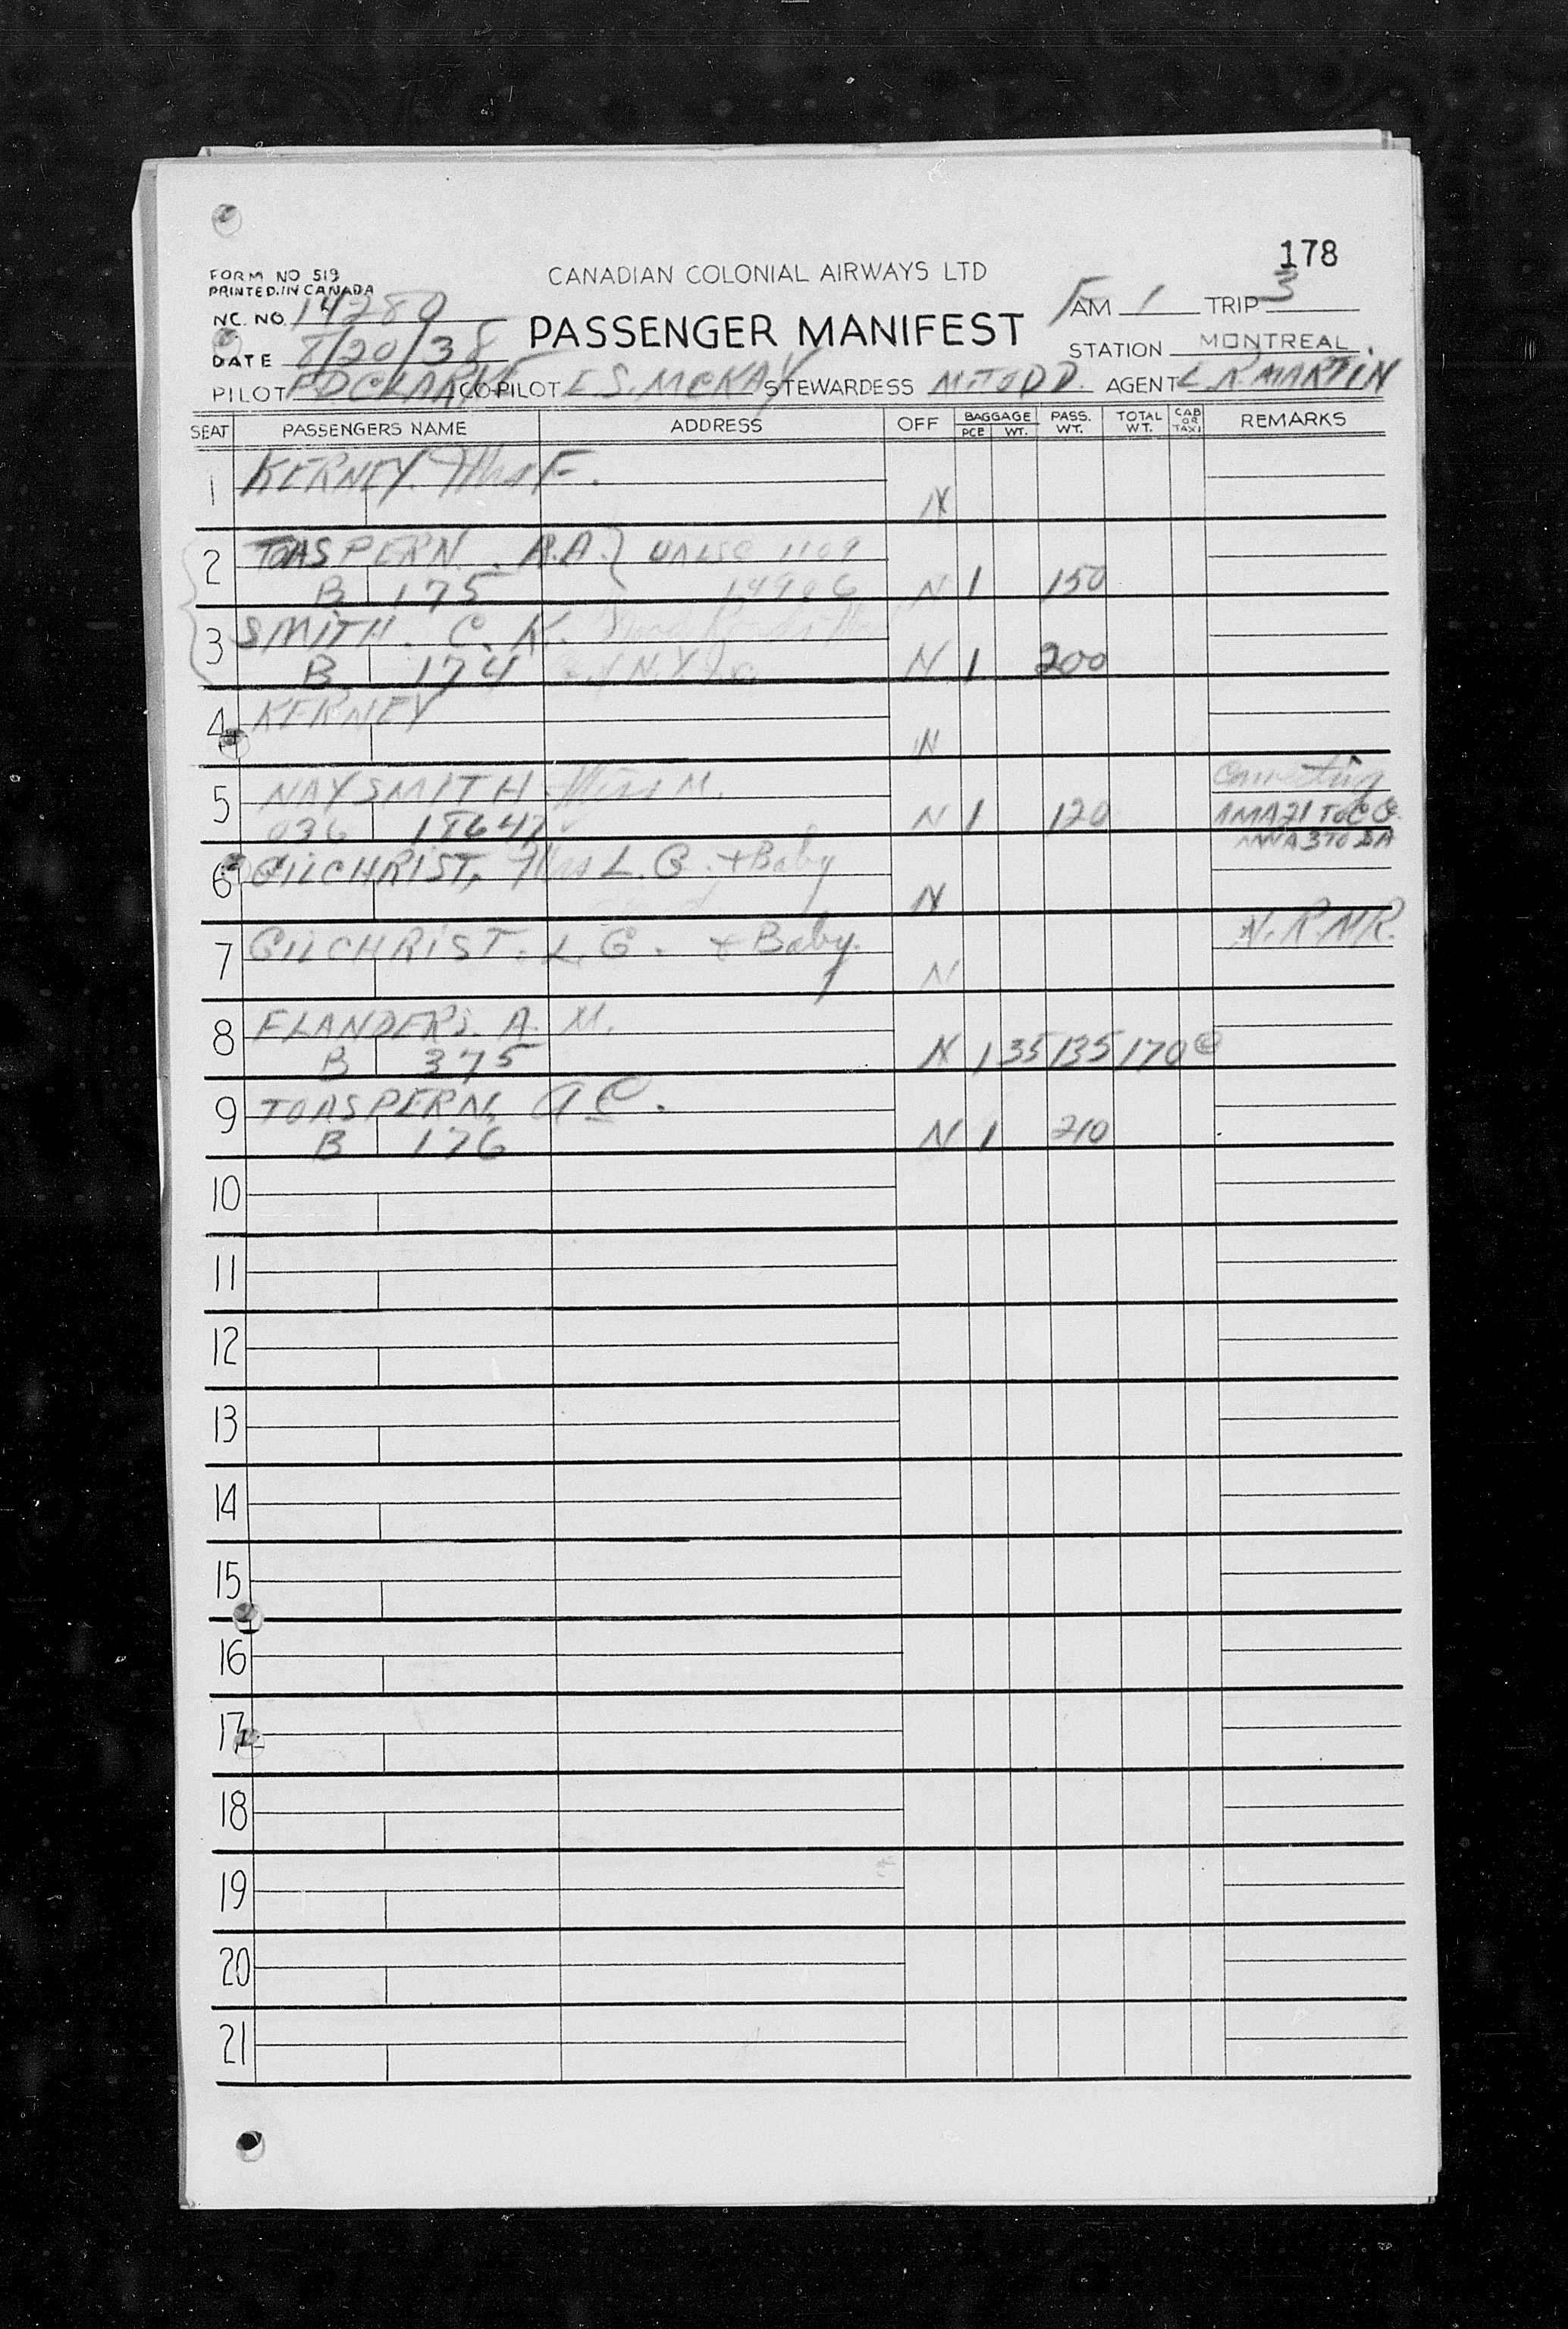 178
FORM NO 519
PRINTED IN CANADA
CANADIAN COLONIAL AIRWAYS LTD
NC. NO. 14280
FAM 1 TRIP 3
PASSENGER MANIFEST
DATE 8/20/38
STATION MONTREAL
PILOT P D CLARKE CO-PILOT E S. McKAY STEWARDESS M. TODD. AGENT L. R. MARTIN
SEAT PASSENGERS NAME ADDRESS OFF BAGGAGE PCE WT. PASS. WT. TOTAL WT. CAB OR TAXI REMARKS
1 KERNEY. Mrs F.
N
2 TOASPERN. A.A. 1109
B 175 14906 N 1 150
3 SMITH. C. K.
B 174 N 1 200
4 KERNEY
N
5 NAYSMITH Miss M.
036 18647 N 1 120
6 GILCHRIST, Mrs L. G. + Baby
N
7 GILCHRIST. L. G. + Baby. N.R.NR.
N
8 FLANDERS. A. M.
B 375 N 1 35 135 170 @
9 TOASPERN, A E.
B 176 N 1 210
10
11
12
13
14
15
16
17
18
19
20
21